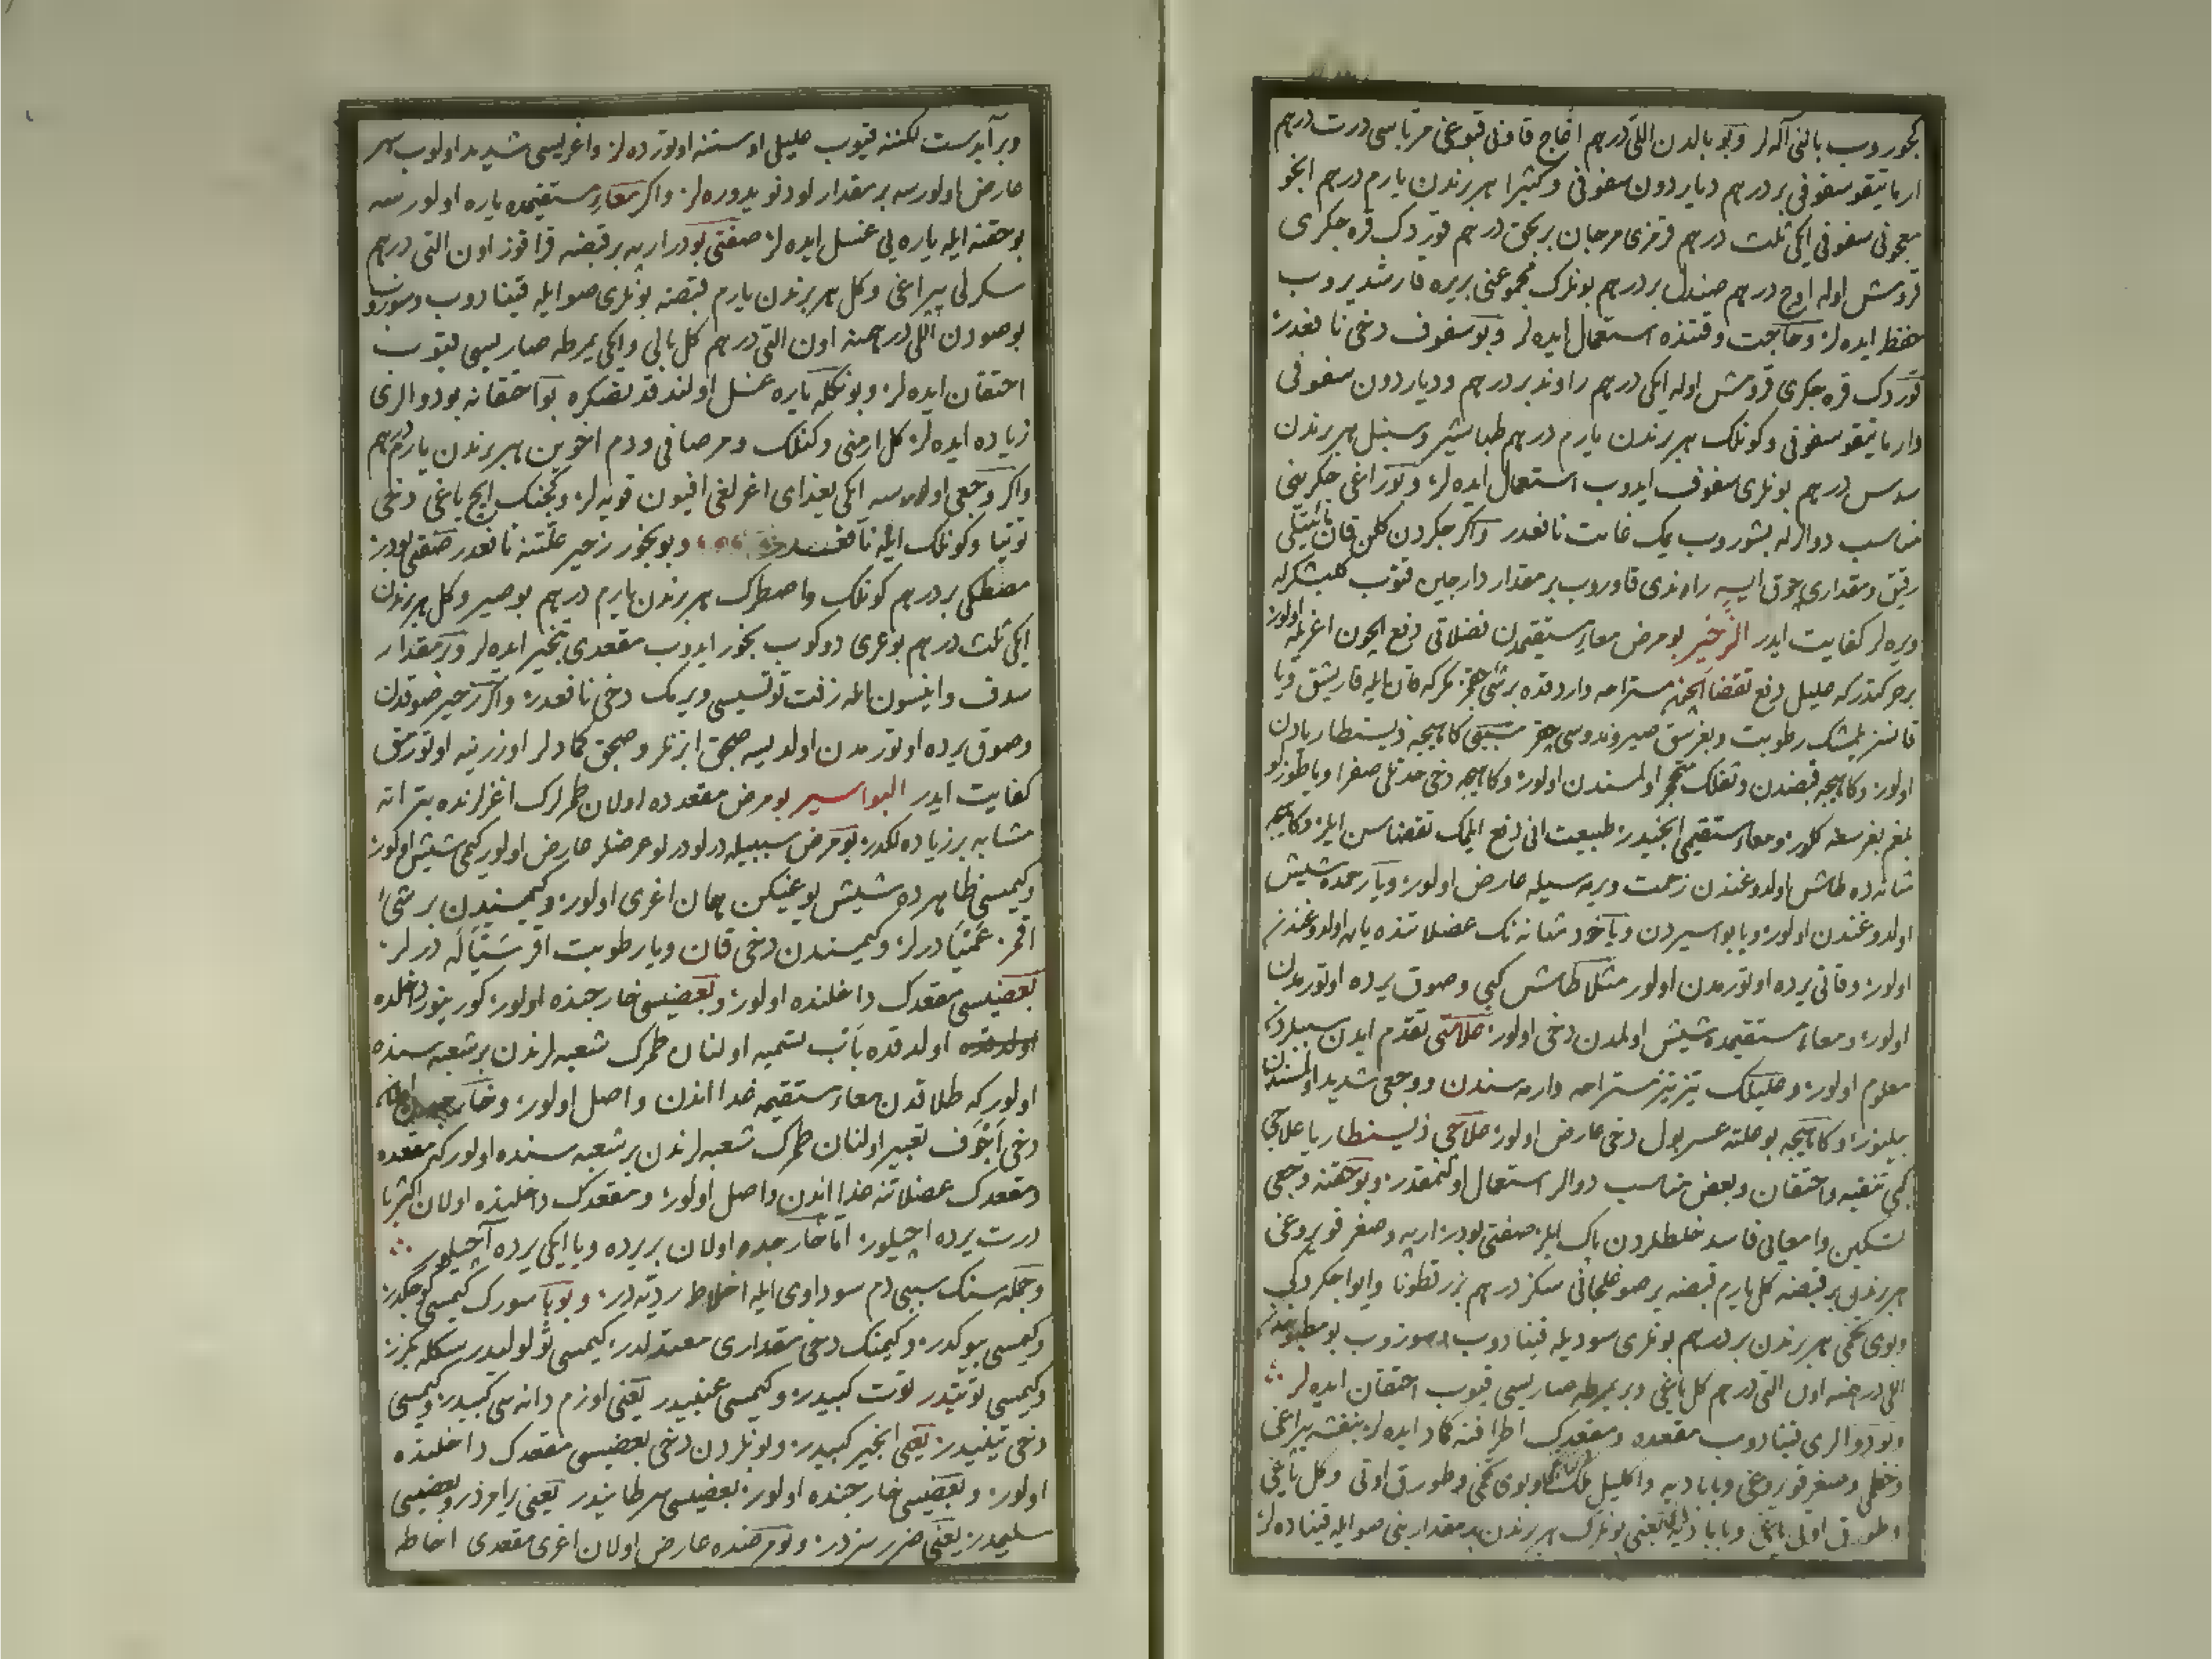 بخوردوب بالنی آله‌لر وبو بالدن اللی درهم اغاج قاونی قبوغی مرباسی درت درهم
ارماتیقو سفوفی بر درهم دیاردون سفوفی وکثیرا هر برندن یارم درهم ابخو
معجونی سفوفی ایکی ثلث درهم قرمزی مرجان بر بچق درهم قوردک قره جکری
قرومش اوله اوچ درهم صندل بر درهم بونلرک مجموعنی بریره قارشدیروب
حفظ ایده‌لر وحاجت وقتنده استعمال ایده‌لر وبو سفوف دخی نافعدر
قوردک قره جکری قرومش اوله ایکی درهم راوند بر درهم ودیاردون سفوفی
دارماتیقو سفوفی وکونلک هر برندن یارم درهم طباشیر وسنبل هر برندن
سدس درهم بونلری سفوف ایدوب استعمال ایده‌لر وبوزاغی جکرینی
مناسب دوالرله بشوروب یمک غایت نافعدر واکر جکردن کلن قان
رقیق ومقداری چوق ایسه راوندی قاوروب بر مقدار دارچین قتوب کلبشکرله
ویره‌لر کفایت ایدر الزحیر بو مرض معاء مستقیمدن فضلاتی دفع ایچون اغریله اولور
بر حرکتدرکه علیل دفع تقضا ایچون مستراحه واردقده برشی چقمز مکرکه قان ایله قاریشق ویا
قانسز یمشک رطوبت وبغرسق صیرندوسی چقر سببی کاهیجه ذیسنطاریادن
اولور وکاهیجه قبضدن وثفلک متحجر اولمسندن اولور وکاهیجه دخی حدتلی صفرا ویا طوزلو
بلغم بغرسغه کلور ومعاء مستقیمی انجیدر طبیعت انی دفع ایلمک تقضاسن ایلر وکاهیجه
مثانه‌ده طاش اولدوغندن زحمت ویرمه سیله عارض اولور ویا رحمده شیش
اولدوغندن اولور ویا بواسیردن ویاخود مثانه‌نک عضلاتنده یاره اولدوغندن
اولور وقاتی یرده اوتورمدن اولور مثلا طاش کبی وصوق یرده اوتورمدن
اولور ومعاء مستقیمده شیش اولمدن دخی اولور علامتی تقدم ایدن سببلردن
معلوم اولور وعلیلک تیز تیز مستراحه وارمه‌سندن ووجعی شدید اولمسندن
بیلنور وکاهیجه بو علته عسر بول دخی عارض اولور علاجی ذیسنطاریا علاجی
کبی تنقیه واحتقان وبعض مناسب دوالر استعمال اولنمقدر وبو حقنه وجعی
تسکین وامعایی فاسد خلطلردن پاک ایلر صفتی بودر ارپه وصغر قویروغی
هر برندن بر قبضه کل یارم قبضه بر صو فلجانی سکز درهم بزرقطونا وایوا چکردکی
وبوی تخمی هر برندن بر درهم بونلری سودیله قینادوب وسوزوب بو مطبوخدن
اللی درهمنه اون التی درهم کل یاغی وبر یمرطه صاریسی قیوب احتقان ایده‌لر
وبو دوالری قینادوب مقعده ومقعدک اطرافنه کماد ایده‌لر بنفشه یپراغی
وخطمی وصغر قویروغی وبابادیه واکلیل ملک وبوی تخمی وطورق اوتی وکل یاغی
وطورق اوتی یاغی وبابادیه یاغی یعنی بونلرک هر برندن بر مقدارینی صو ایله قیناده‌لر
وبر آبدست لکننه قیوب علیلی اوستنه اوتورده‌لر واغریسی شدید اولوب سهر
عارض اولورسه بر مقدار لودنو یدوره‌لر واکر معاء مستقیمده یاره اولورسه
بو حقنه ایله یاره‌یی غسل ایده‌لر صفتی بودر ارپه بر قبضه قراقوز اون التی درهم
سکرلی یپراغی وکل هر برندن یارم قبضه بونلری صو ایله قینادوب وسوزوب
بو صودن اللی درهمنه اون التی درهم کل بالی وایکی یمرطه صاریسی قیوب
احتقان ایده‌لر وبونکله یاره غسل اولندقدنصکره بو احتقانه بو دوالری
زیاده ایده‌لر کل ارمنی وکنلک ومرصافی ودم اخوین هر برندن یارم درهم
واکر وجعی اولورسه ایکی بغدای اغرلغی افیون قویه‌لر وکچنک ایچ یاغی دخی
توتیا وکونلک ایله نافعدر وبو بخور زحیر علتنه نافعدر صفتی بودر
مصطکی بر درهم کونلک واصطرک هر برندن یارم درهم بوصیر وکل هر برندن
ایکی ثلث درهم بونلری دوکوب بخور ایدوب مقعدی تبخیر ایده‌لر وبر مقدار
سدف وانیسون ایله زفت توتسیسی ویرمک دخی نافعدر واکر زحیر صوقدن
وصوق یرده اوتورمدن اولدیسه صیجق ابزنلر وصیجق کمادلر اوزرینه اوتورمق
کفایت ایدر البواسیر بو مرض مقعدده اولان طمرلرک اغزلرنده بتر اته
مشابه بر زیاده‌لکدر بو مرض سببیله درلو درلو مرضلر عارض اولور کیمی شیش اولور
وکیمسی ظاهرده شیش یوغیکن همان اغری اولور وکیمسندن برشیء
اقمز عمیا درلر وکیمسندن دخی قان ویا رطوبت اقر سیاله درلر
بعضیسی مقعدک داخلنده اولور وبعضیسی خارجنده اولور کورینور داخلده
اولدقده باب تسمیه اولنان طمرک شعبه‌لرندن بر شعبه‌سنده
اولورکه طلاقدن معاء مستقیمه غدا اندن واصل اولور
دخی اجوف تعبیر اولنان طمرک شعبه‌لرندن بر شعبه‌سنده اولورکه مقعده
ومقعدک عضلاتنه غدا اندن واصل اولور ومقعدک داخلنده اولان اکثریا
درت یرده اچیلور اما خارجده اولان بریرده ویا ایکی یرده آچیلور
وجمله‌سنک سببی دم سوداوی ایله اخلاط ردیه‌در وبو باسورک کیمسی کوچکدر
وکیمسی بیوکدر وکیمنک دخی مقداری معتدلدر کیمسی ثؤلولیدر سکله بکزر
وکیمسی توتیدر توت کبیدر وکیمسی عنبیدر یعنی اوزم دانه‌سی کبیدر وکیمسی
دخی تینیدر یعنی انجیر کبیدر وبونلردن دخی بعضیسی مقعدک داخلنده
اولور وبعضیسی خارجنده اولور بعضیسی سرطانیدر یعنی یرامزدر وبعضیسی
سلیمدر یعنی ضررسزدر وبو مرضده عارض اولان اغری مقعدی احاطه